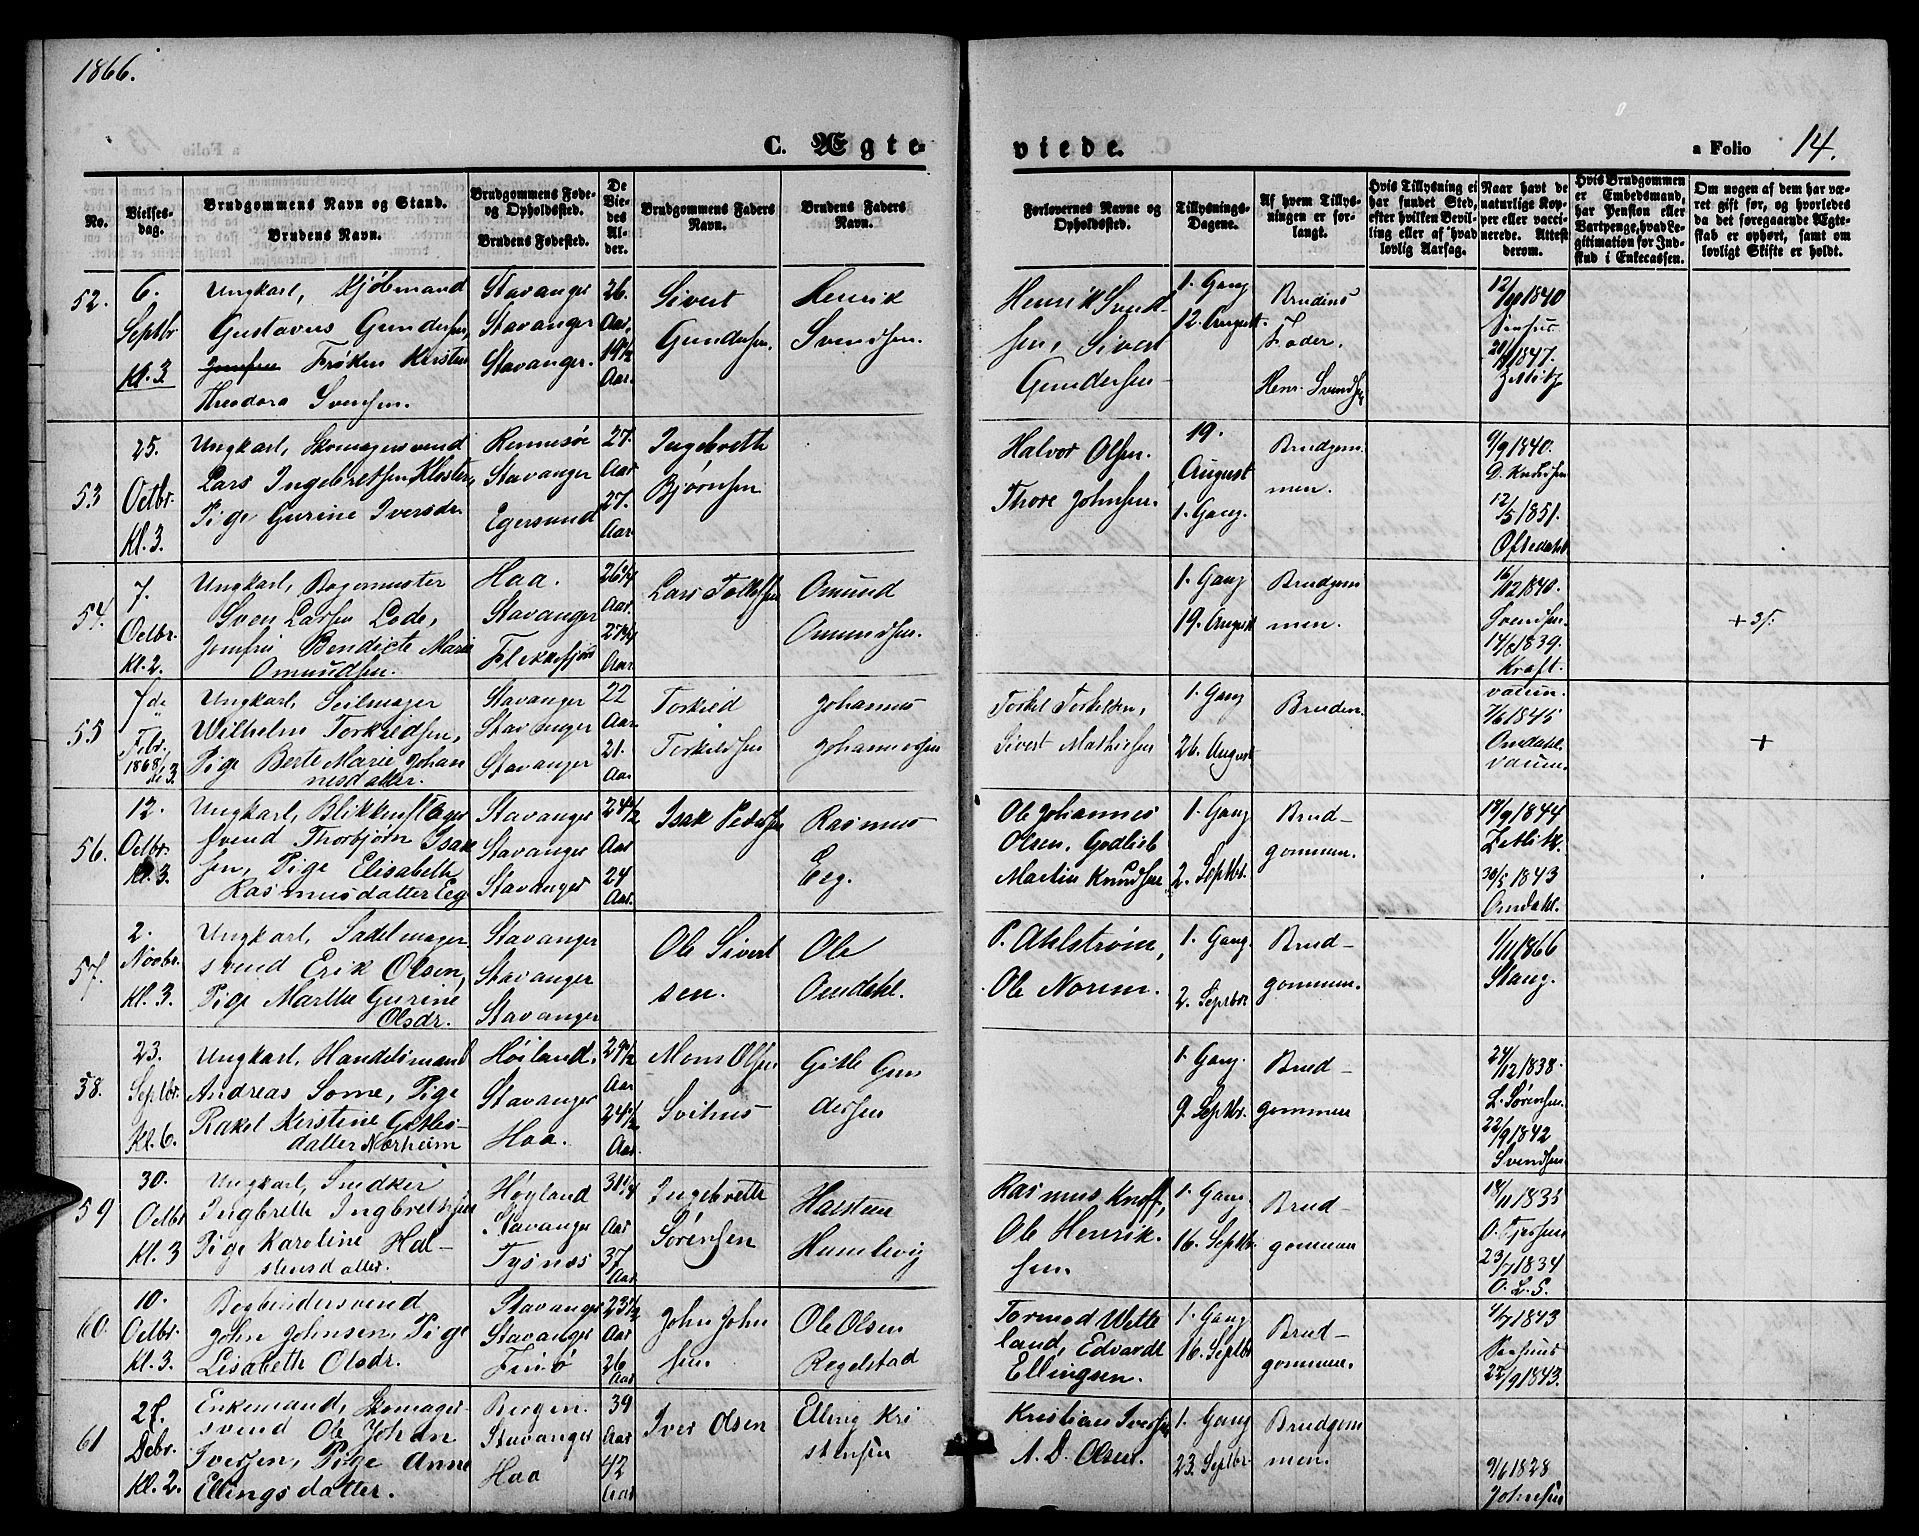 1866.
C. Ægte-
viede.
a Folio 14.
No.
Vielses-
dag.
Brudgommens Navn og Stand.
Brudens Navn.
Brudgommens Føde-
og Opholdssted.
Brudens Fødested.
De
Vie-
des
Al-
der.
Brudgommens Faders
Navn.
Brudens Faders
Navn.
Forlovernes Navne og
Opholdssted.
Tillysnings-
Dagene.
Af hvem Tillys-
ningen er for-
langt.
Hvis Tillysning ei
har fundet Sted,
efter hvilken Bevil-
ling eller af hvad
lovlig Aarsag.
Naar havt de
naturlige Kop-
per eller vacci-
nerede. Attest
derom.
Hvis Brudgommen
er Embedsmand,
har Pension eller
Vartpenge, hvad Le-
gitimation for Ind-
skud i Enkecassen.
Om nogen af dem har væ-
ret gift før, og hvorledes
da det foregaaende Ægte-
skab er ophørt, samt om
lovligt Skifte er holdt.
52.
6.
Septbr
Kl. 3
Ungkarl, Kjøbmand
Gustavus Gundersen,
Frøken Kirstine
Theodora Svensen.
Stavanger
Stavanger
Stavanger.
26.
Aar,
19 1/2
Aar.
Sivert
Gundersen.
Henrik
Svendsen.
Henrik Svend-
sen, Sivert
Gundersen
1. Gang
12. August.
Brudens
Fader.
Henr. Svendsen
1840
1847.
53
25.
Octbr.
Kl. 3.
Ungkarl, Skomagersvend
Lars Ingebretsen Kloster,
Pige Gurine Iversdr.
Rennesøe
Stavanger
Egersund
27.
Aar
27.
Aar.
Ingebreth
Bjørnsen
Halvor Olsen.
Thore Johnsen.
19.
August
1. Gang.
Brudgom
men.
9/9 1840.
D. Knudsen
12/5 1851.
Oftedahl
54.
7.
Octbr.
Kl. 2.
Ungkarl, Bagemester
Sven Larsen Lode,
Jomfru Bendicte Marie
Omundsen.
Haa.
Stavanger
Flekkefjord
26 3/4
Aar.
27 3/4
Aar.
Lars Tollefsen
Omund
Omundsen.
1. Gang
19. August
Brudgom
men.
16/12 1840.
Svendsen.
14/6 1839.
Kraft.
+ 35.
55
7de
Febr.
1868
Kl. 3
Ungkarl, Seilmager
Wilhelm Torkildsen,
Pige Berte Marie Johan
nesdatter.
Stavanger
Stavanger
Stavanger
22
Aar.
21.
Aar
Torkild
Torkildsen
Johannes
Johannessen
Torkel Torkelsen,
Sivert Mathisen
1. Gang
26. August
Bruden
vaccin.
7/6 1845
Omdahl.
vaccin.
+
56.
12.
Octbr.
Kl. 3.
Ungkarl, Blikkenslager
svend Thorbjørn Isak
sen, Pige Elisabeth
Rasmusdatter Eeg
Stavanger
Stavanger
Stavanger
24 1/2
Aar
24
Aar.
Isak Pedersen
Rasmus
Eeg.
Ole Johannes
Olsen, Godlieb
Martin Knudsen
1. Gang
2. Septbr.
Brud-
gommen.
19/9 1844
Zetlitz.
30/5 1843
Omdahl.
57.
2.
Novbr.
Kl. 3.
Ungkarl, Sadelmager
svend Erik Olsen,
Pige Marthe Gurine
Olsdr.
Stavanger
Stavanger
Stavanger
Ole Sivert
sen.
Ole
Omdahl.
P. Ahlstrøm,
Ole Norem.
1. Gang.
2. Septbr
Brud-
gommen.
1/11 1866
Stang.
58.
23.
Septbr.
Kl. 6.
Ungkarl, Handelsmand
Andreas Some, Pige
Rakel Kerstine Gitles-
datter Nærheim
Høiland.
Stavanger
Haa.
29 1/2
Aar
24 1/2
Aar.
Mons Olsen
Svihus
Gitle Gun
dersen
1. Gang.
9. Septbr.
Brud-
gommen
24/12 1838.
L. Sørensen.
22/9 1842
Svendsen
59
30.
Octbr
Kl. 3
Ungkarl, Snedker
Ingbreth Ingbrethsen
Pige Karoline Hal-
stensdatter.
Høyland
Stavanger
Tysnæs
31 1/4
Aar
37
Aar
Ingebreth
Sørensen
Halsten
Humlevig
Rasmus Knoff,
Ole Henrik-
sen.
1. Gang
16. Septbr.
Brud-
gommen
18/11 1835
O. Tjersen
23/7 1834
O. L. S.
60.
10.
Octbr.
Kl. 3.
Bogbindersvend
John Johnsen, Pige
Lisabeth Olsdr.
Stavanger
Stavanger
Finnø
23 1/2
Aar
26
Aar
John John
sen.
Ole Olsen
Regelstad
Tormod Wette
land, Edvardt
Ellingsen.
1. Gang
16. Septbr
Brud-
gommen.
4/7 1843
22/9 1843.
61
27.
Debr.
Kl. 2.
Enkemand, Skomager-
svend Ole Johan
Iversen, Pige Anne
Ellingsdatter.
Bergen.
Stavanger
Haa
39
Aar
42
Aar
Iver Olsen
Elling Kri
stensen
Kristian Iversen
A. D. Olsen.
1. Gang
23. Septbr.
Brudgom
men.
9/6 1828
Johnsen